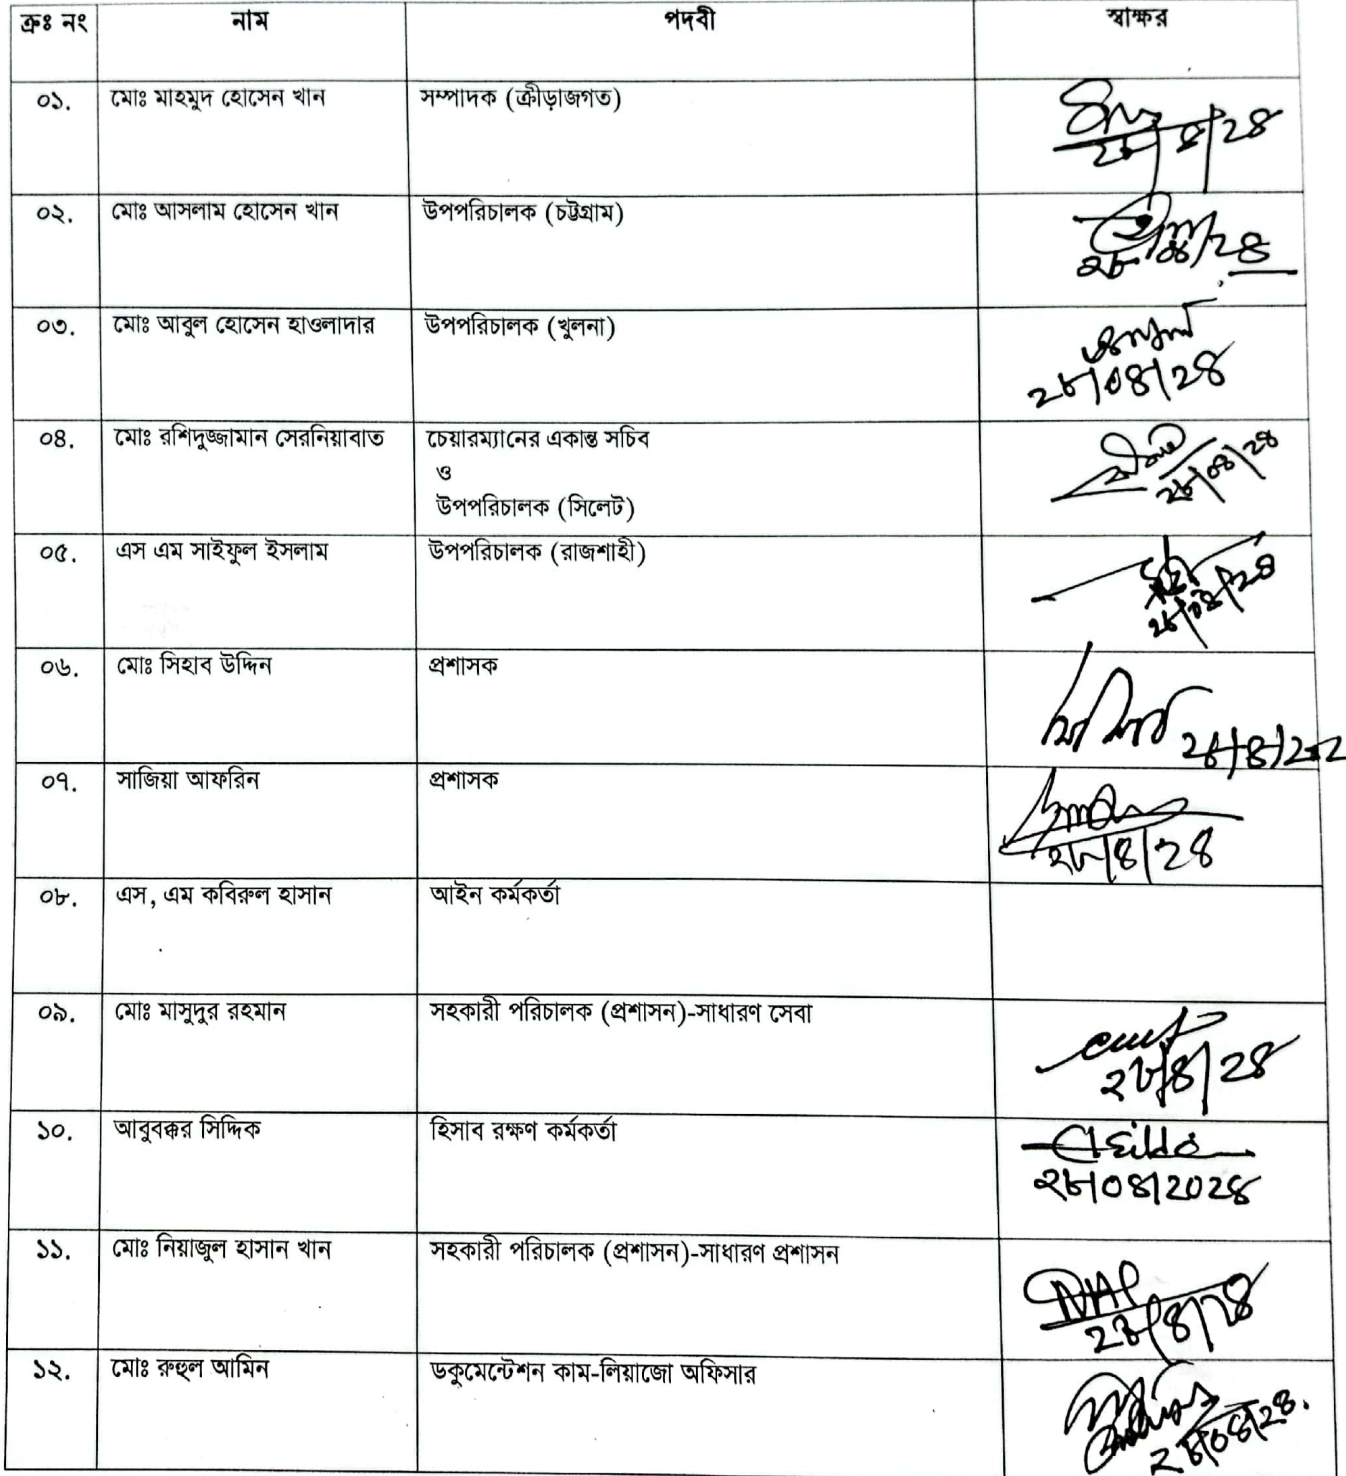 ক্রঃ নং নাম পদবী স্বাক্ষর
০১. মোঃ মাহমুদ হোসেন খান সম্পাদক (ক্রীড়াজগত)
০২. মোঃ আসলাম হোসেন খান উপপরিচালক (চট্টগ্রাম)
০৩. মোঃ আবুল হোসেন হাওলাদার উপপরিচালক (খুলনা)
২৮/০৪/২৪
০৪. মোঃ রশিদুজ্জামান সেরনিয়াবাত চেয়ারম্যানের একান্ত সচিব
ও
উপপরিচালক (সিলেট)
২৮/০৪/২৪
০৫. এস এম সাইফুল ইসলাম উপপরিচালক (রাজশাহী)
০৬. মোঃ সিহাব উদ্দিন প্রশাসক
০৭. সাজিয়া আফরিন প্রশাসক
২৮/৪/২৪
০৮. এস, এম কবিরুল হাসান আইন কর্মকর্তা
০৯. মোঃ মাসুদুর রহমান সহকারী পরিচালক (প্রশাসন)-সাধারণ সেবা
২৮/৪/২৪
১০. আবুবক্কর সিদ্দিক হিসাব রক্ষণ কর্মকর্তা
২৮/০৪/২০২৪
১১. মোঃ নিয়াজুল হাসান খান সহকারী পরিচালক (প্রশাসন)-সাধারণ প্রশাসন
১২. মোঃ রুহুল আমিন ডকুমেন্টেশন কাম-লিয়াজো অফিসার